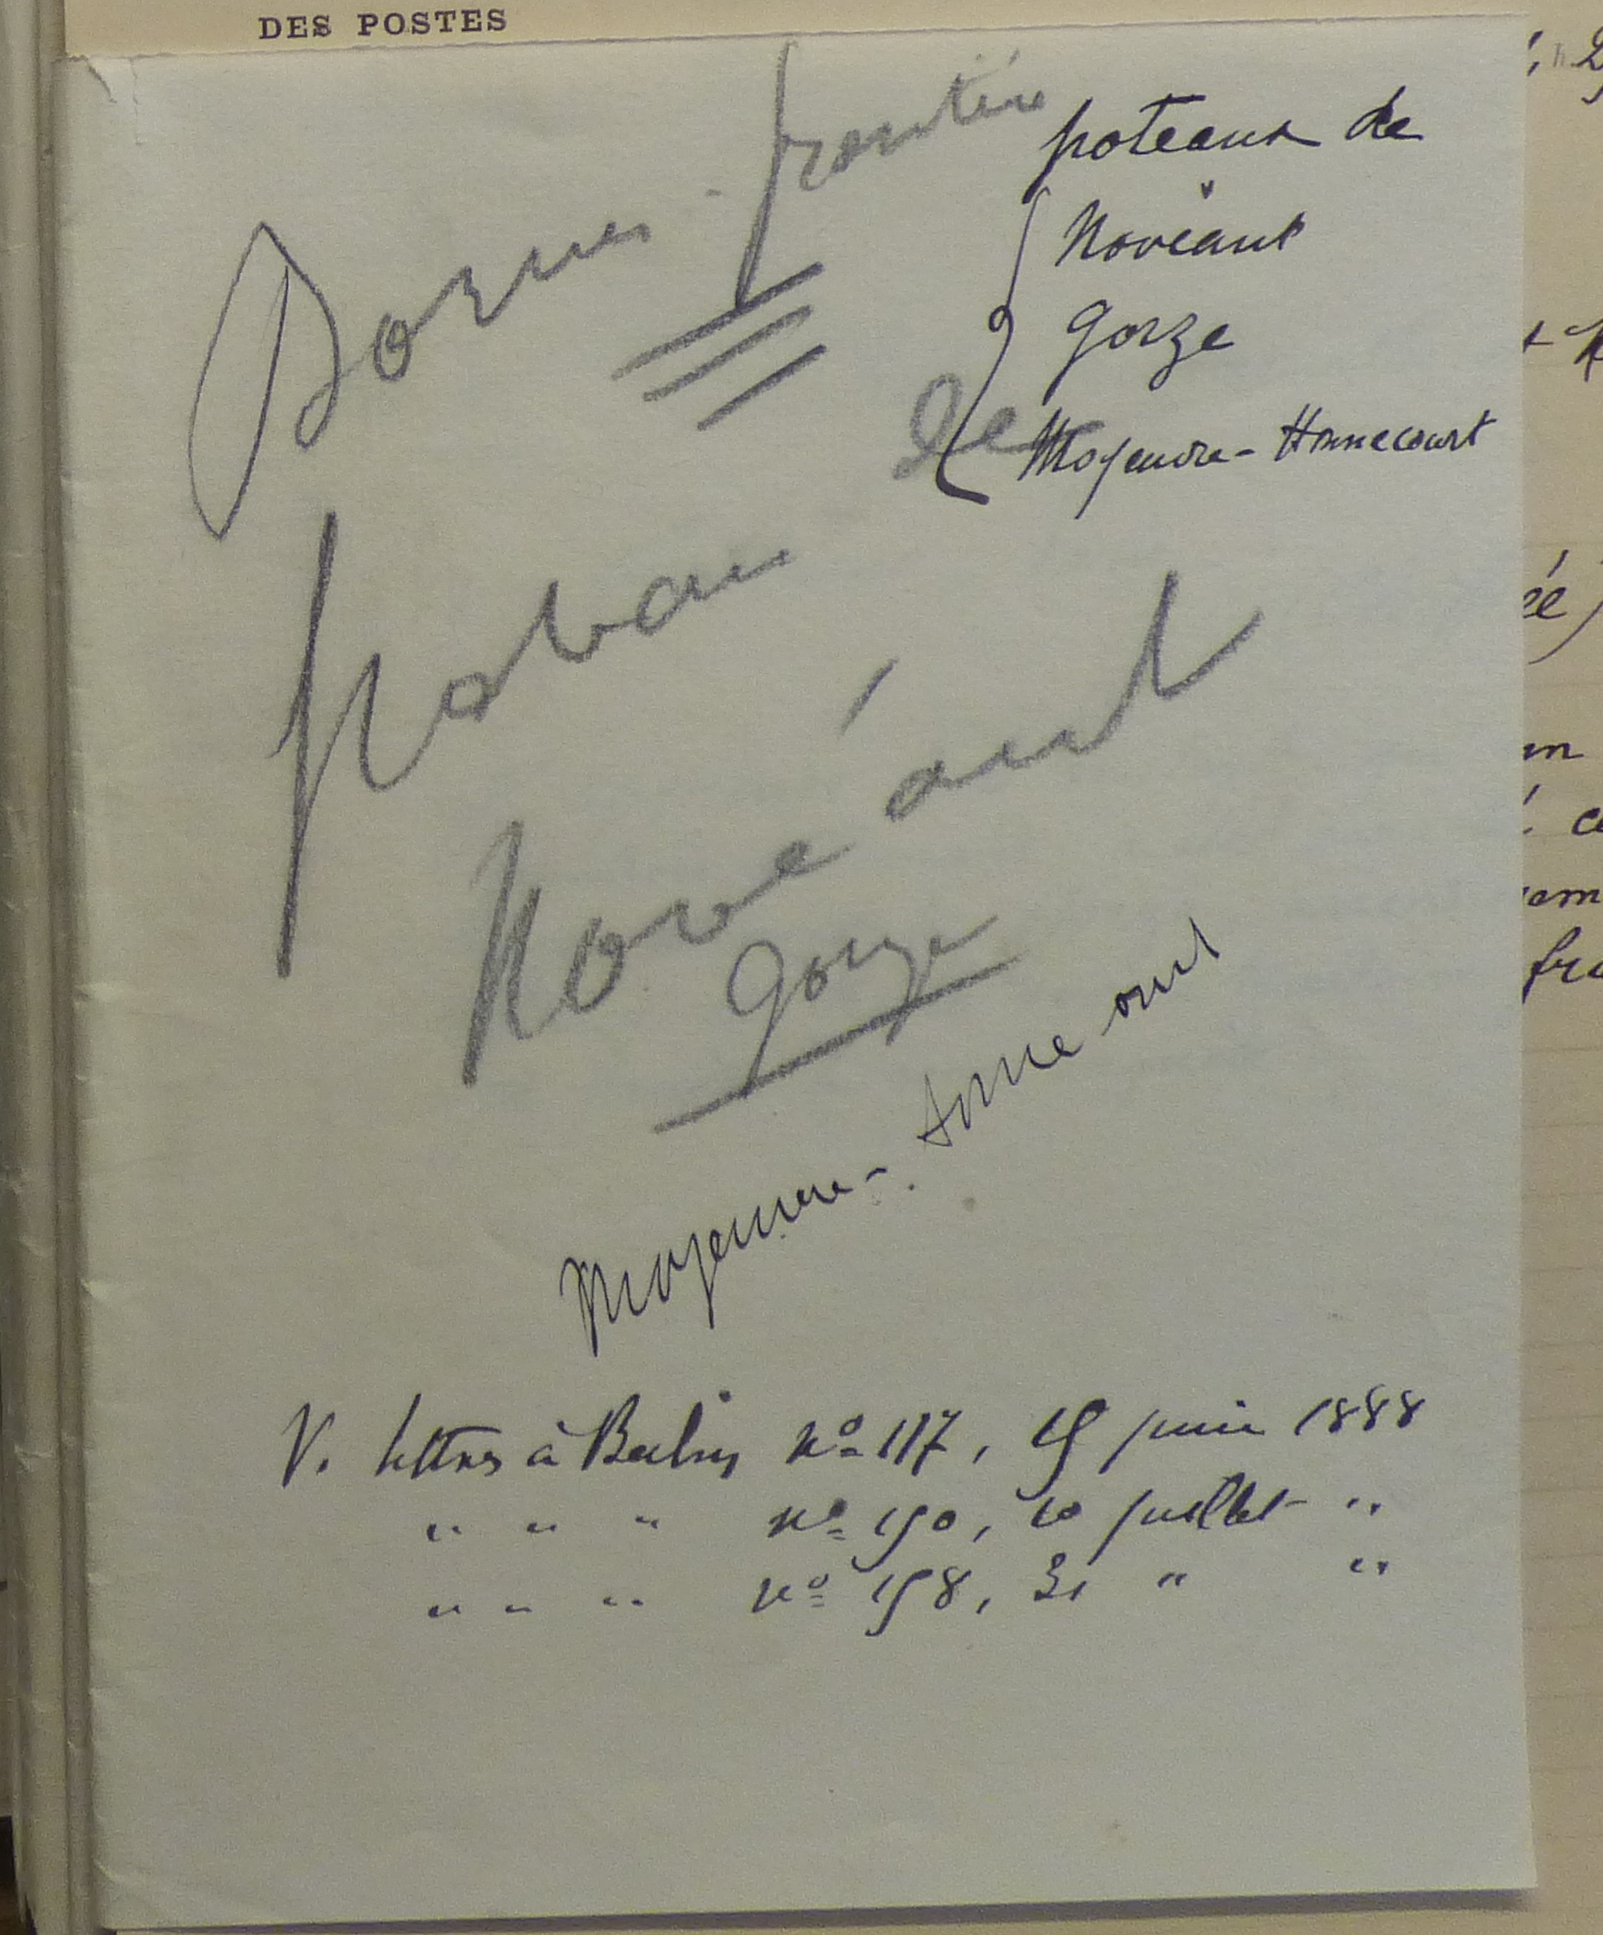 DES POSTES
Bornes-frontière
poteaux de
Novéant
Gorze
Moyeuvre-Homécourt
de
poteau
Novéant
Gorze
Moyeuvre-
V. lettres à Berlin, No 117, 15 juin 1888
" " " No 150, 10 juillet "
" " " No 158, 31 " "